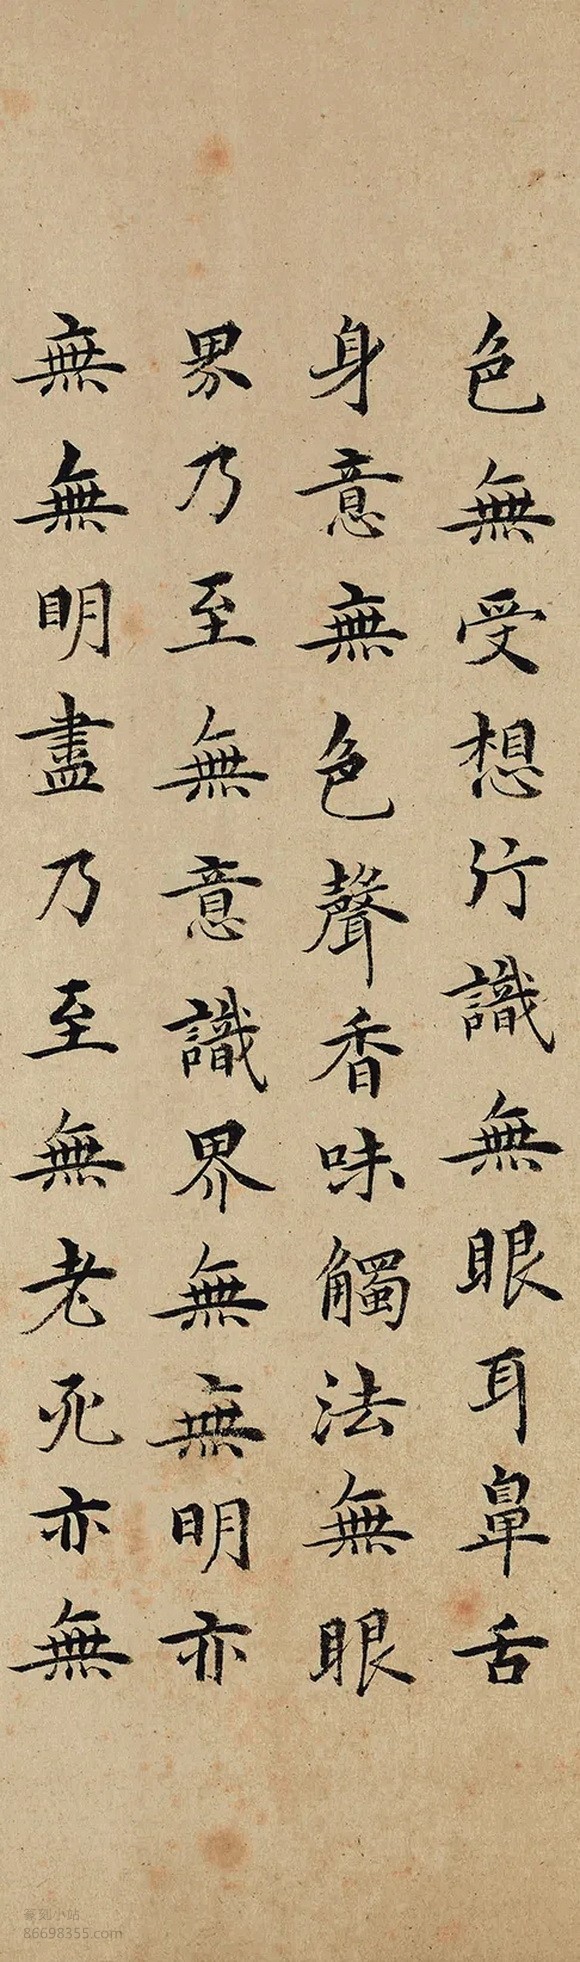 色無受想行識無眼耳鼻舌
身意無色聲香味觸法無眼
界乃至無意識界無無明亦
無無明盡乃至無老死亦無
篆刻小站
86698355.com